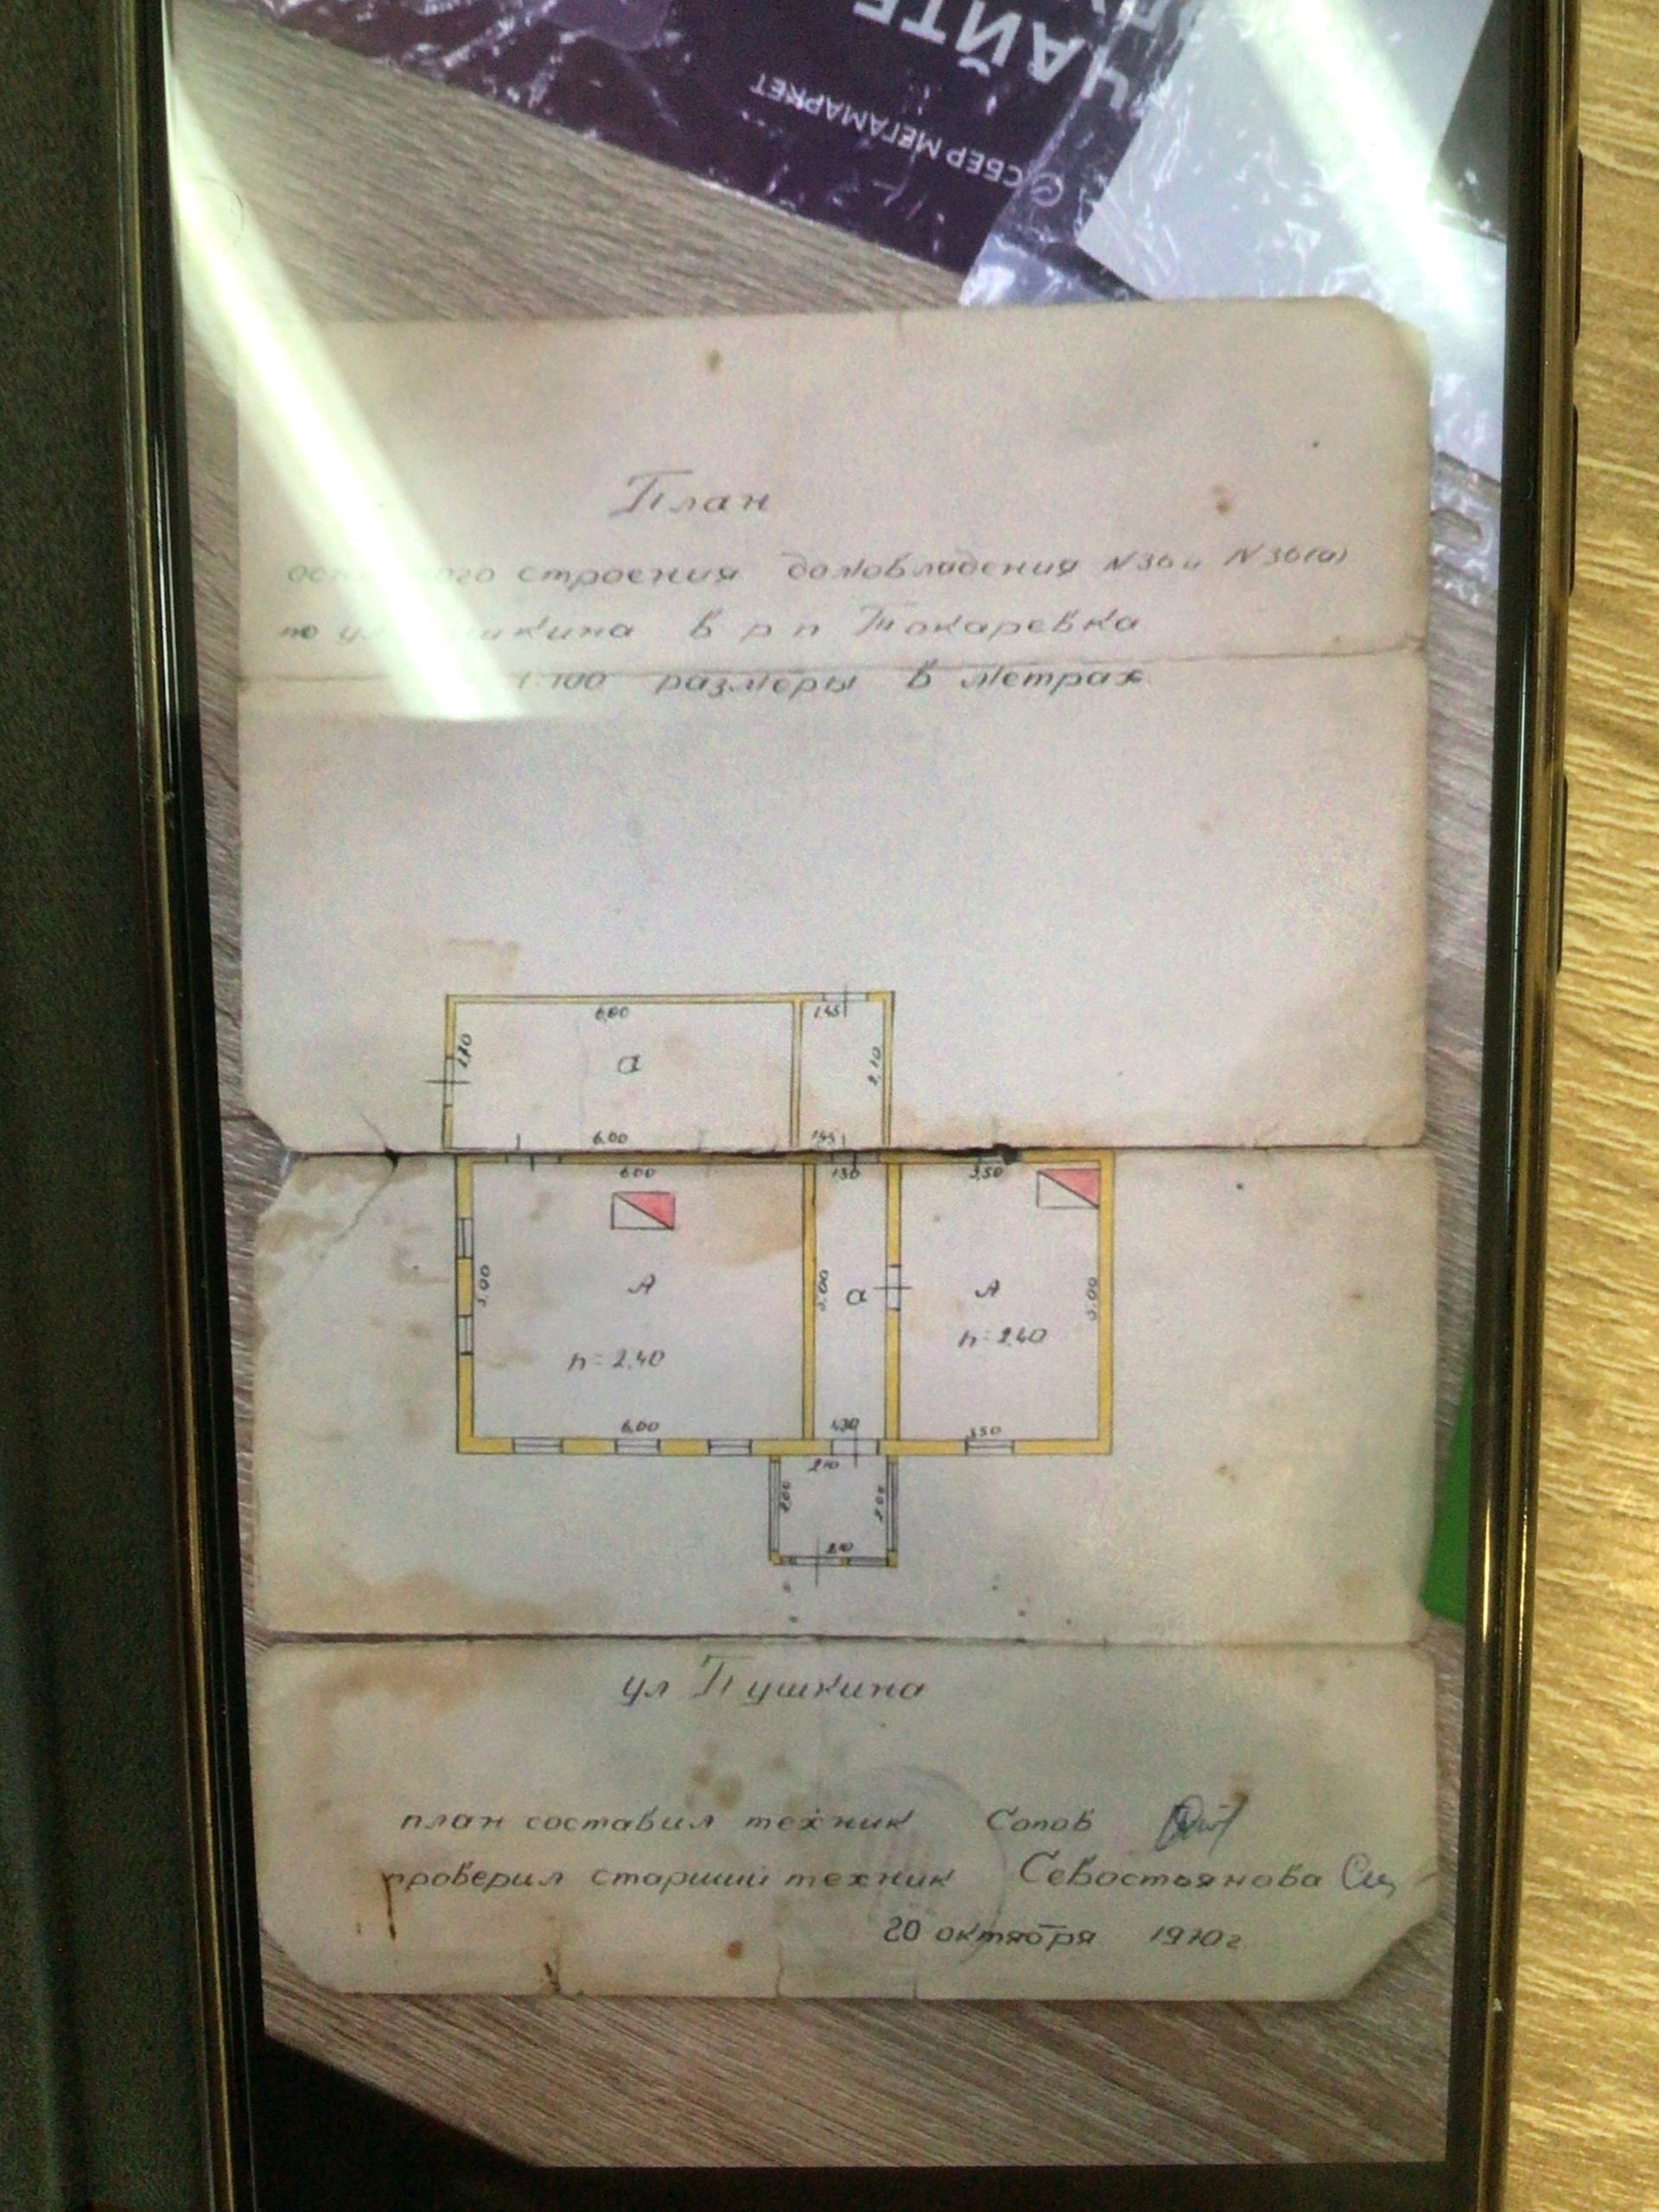 ЧАЙТЕ
СБЕР МЕГАМАРКЕТ
План
строения домовладения N36 и N36(а)
по в р п Токаревка
1:100 размеры в метрах
6,00 1,45
а
2,10
6,00 1,45
6,00 1,30 3,50
А а А
5,00 5,00 5,00
h=2,40 h=2,40
6,00 1,30 3,50
2,10
2,00 2,00
2,10
ул Пушкина
план составил техник Сопов
проверил старший техник Севостьянова
20 октября 1970г.